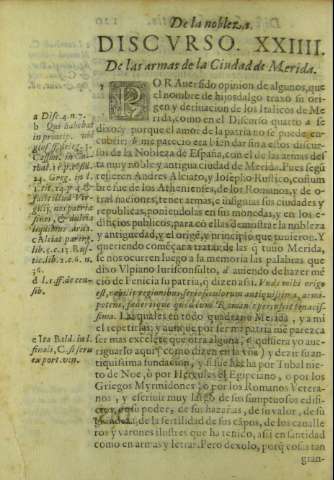 De la nobleza.
DISCVRSO. XXIIII.
De las armas de la Ciudad de Merida.
POR Auer sido opinion de algunos, que
el nombre de hijosdalgo traxo su ori-
gen y deriuacion de los Italicos de Me-
rida, como en el Discurso quarto a se
dixo: y porque el amor de la patria no se puede en-
cubrir: b me parecio era bien dar fin a estos discur-
sos de la Nobleza de España, con el de las armas des-
ta muy noble y antigua ciudad de Merida. Pues segū
refieren Andres Alciato, y Iosepio Rustico, costum
bre fue de los Athenienses, de los Romanos, y de o-
tras naciones, tener armas, e insignias sus ciudades y
republicas, poniendolas en sus monedas, y en los e-
dificios publicos, para con ellas demostrar la nobleza
y antiguedad, y el origē, y principio que tuuieron. Y
queriendo começar a tratar de las q̄ tuuo Merida,
se nos ocurren luego a la memoria las palabras que
dixo Vlpiano Iurisconsulto, d auiendo de hazer mē
cion de Fenicia su patria, q̄ dizen assi. Vnde mihi origo
est,
Las quales en todo quadran a Merida, y a mi
el repetirlas, y aunque por ser mi patria me parezca
ser mas excelente que otra alguna, e quisiera yo aue-
riguar lo aqui (como dizen en la vña) y dezir su an-
tiquissima fundacion, y si fue hecha por Tubal nie-
to de Noe, o por Hercules el Egipciano, o por los
Griegos Myrmidones, o por los Romanos Vetera-
nos, y escriuir muy largo de sus sumptuosos edifi-
cios, de su poder, de sus hazañas, de su valor, de su
grandeza, de la fertilidad de sus cāpos, de los caualle
ros y varones ilustres que ha tenido, assi en santidad
como en armas y letras. Pero dexolo, porq̄ cosas tan
gran-
a Disc. 4. n. 7.
b Qui habebat
in princip.
24. Geog. in l.
1. tit. 14. p. 4.
Alciat. parerg.
lib. 5. c. 13. Rus-
tic. lib. 2. c. 6. n.
36.
d l. 1. ff. de cen-
sib.
e Ita Bald. in l.
finali, C. si seru
export. vin.